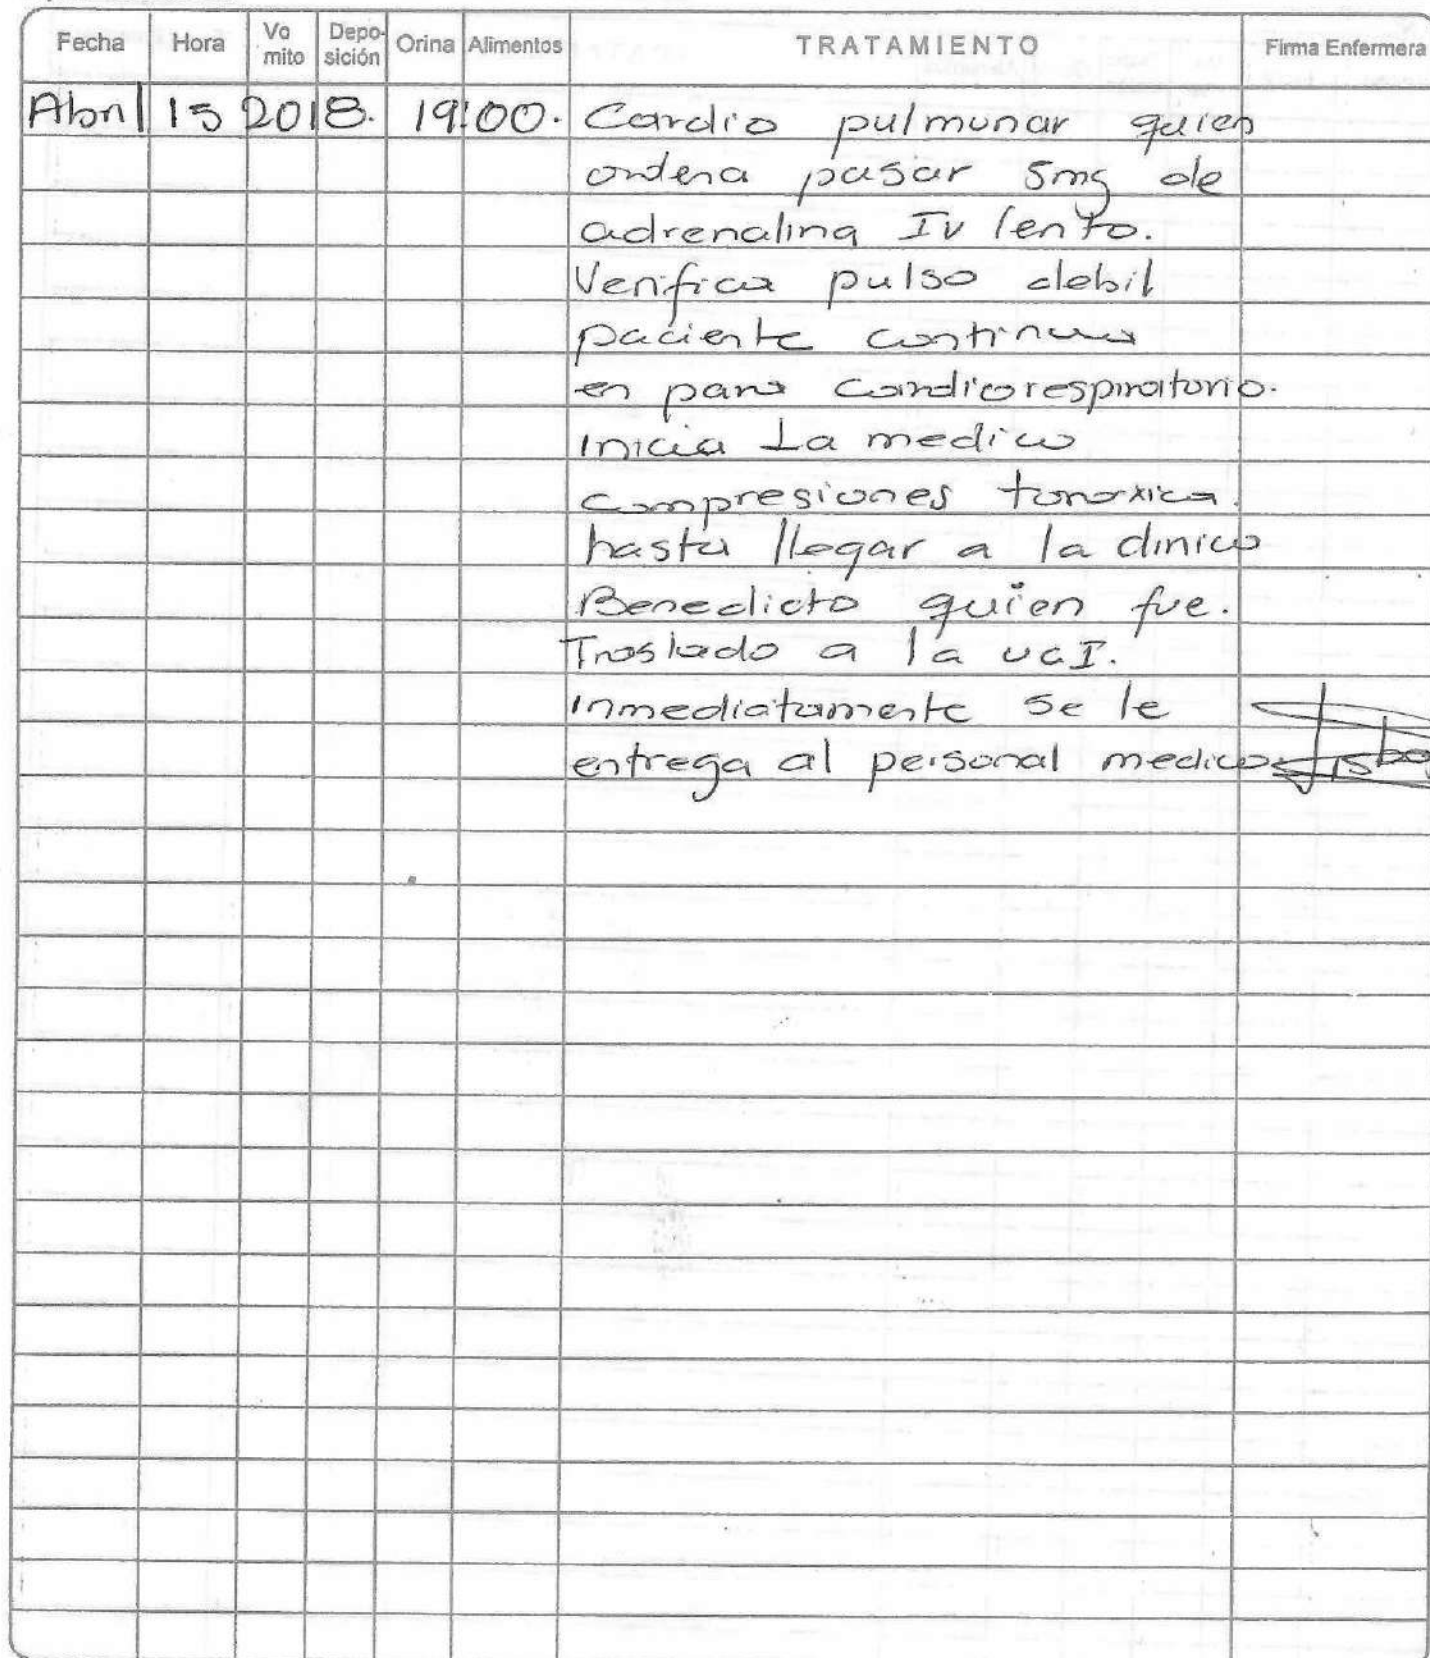 Fecha Hora Vo mito Depo- sición Orina Alimentos TRATAMIENTO Firma Enfermera
Abril 15 2018. 19:00. Cardio pulmunar quien
ordena pasar 5mg de
adrenalina IV lento.
Verifica pulso debil
paciente continua
en paro cardiorespiratorio.
Inicia La medico
compresiones toraxica.
hasta llegar a la clinica
Benedicto quien fue.
Traslado a la UCI.
Inmediatamente se le
entrega al personal medico